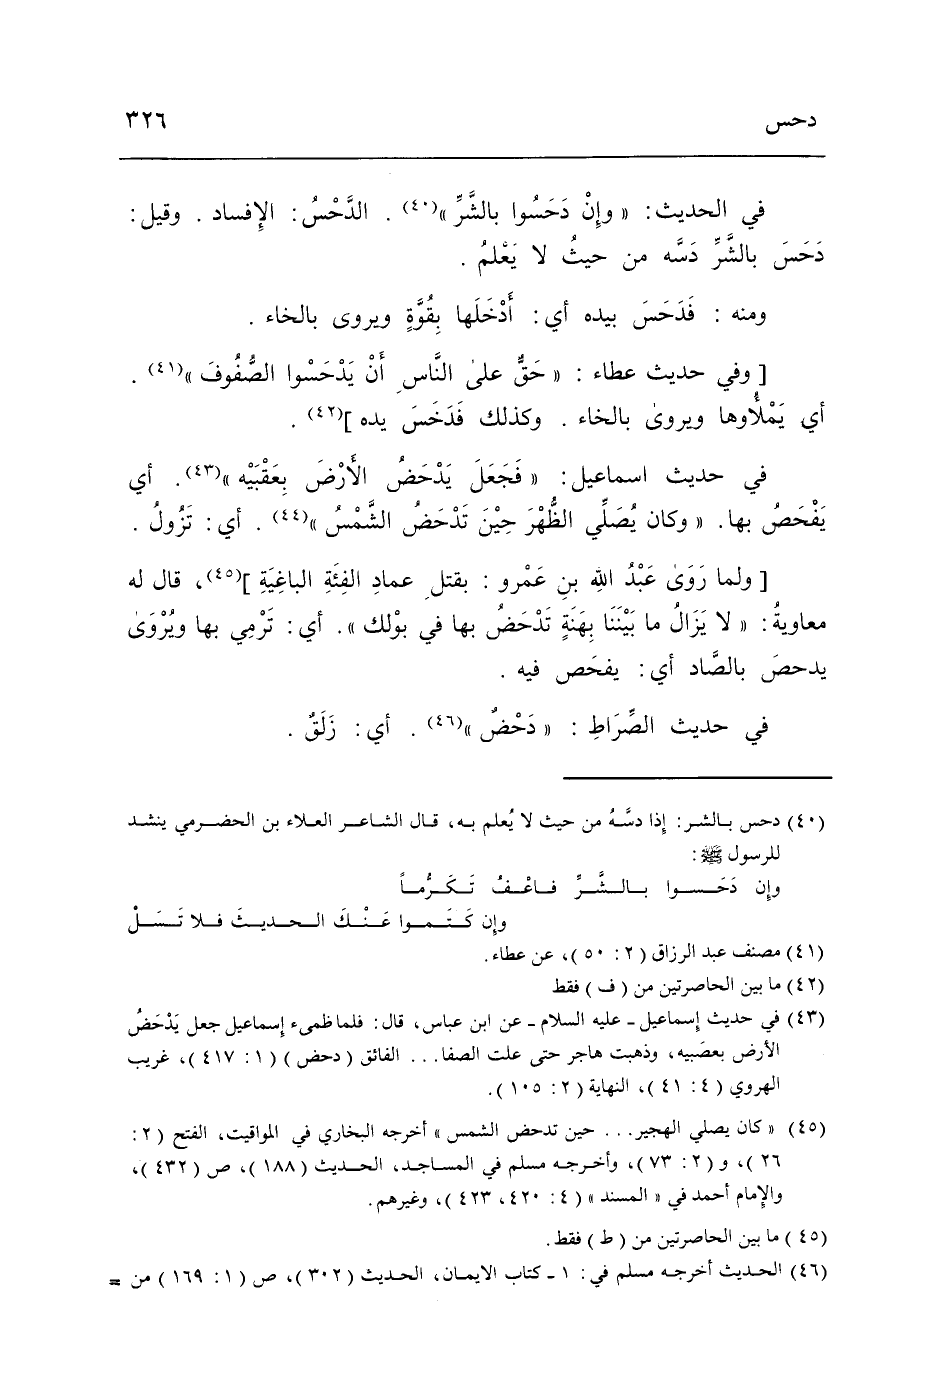 دحس ٣٢٦
في الحديث: « وإنْ دَحَسُوا بالشَّرِّ »(٤٠) . الدَّحْسُ: الإفساد . وقيل:
دَحَسَ بالشَّرِّ دَسَّه من حيثُ لا يَعْلمُ .
ومنه : فَدَحَسَ بيده أي: أَدْخَلَها بِقُوَّةٍ ويروى بالخاء .
[ وفي حديث عطاء : « حَقٌّ على النَّاسِ أَنْ يَدْحَسْوا الصُّفُوفَ »(٤١) .
أي يَمْلأُوها ويروىٰ بالخاء . وكذلك فَدَخَسَ يده ](٤٢) .
في حديث اسماعيل: « فَجَعَلَ يَدْحَضُ الأَرْضَ بِعَقْبَيْه »(٤٣). أي
يَفْحَصُ بها. « وكان يُصَلِّي الظُّهْرَ حِيْنَ تَدْحَضُ الشَّمْسُ »(٤٤) . أي: تَزُولُ .
[ ولما رَوَىٰ عَبْدُ اللهِ بنِ عَمْرو : بقتلِ عمادِ الفِئَةِ الباغِيَةِ ](٤٥)، قال له
معاويةُ: « لا يَزَالُ ما بَيْنَنَا بِهَنَةٍ تَدْحَضُ بها في بوْلك ». أي: تَرْمِي بها ويُرْوَىٰ
يدحصَ بالصَّاد أي: يفحَص فيه .
في حديث الصِّرَاطِ : « دَحْضٌ »(٤٦) . أي: زَلَقٌ .
(٤٠) دحس بالشر: إذا دسَّهُ من حيث لا يُعلم به، قال الشاعر العلاء بن الحضرمي ينشد
للرسول ﷺ:
وإن دَحَسوا بالشَّرِّ فاعْفُ تَكَرُّماً
وإن كَتَموا عَنْكَ الحديثَ فلا تَسَلْ
(٤١) مصنف عبد الرزاق (٢: ٥٠)، عن عطاء.
(٤٢) ما بين الحاصرتين من (ف) فقط
(٤٣) في حديث إسماعيل - عليه السلام - عن ابن عباس، قال: فلما ظمىء إسماعيل جعل يَدْحَضُ
الأرض بعصَبيه، وذهبت هاجر حتى علت الصفا... الفائق (دحض) (١: ٤١٧)، غريب
الهروي (٤: ٤١)، النهاية (٢: ١٠٥).
(٤٥) « كان يصلي الهجير... حين تدحض الشمس » أخرجه البخاري في المواقيت، الفتح (٢:
٢٦)، و (٢: ٧٣)، وأخرجه مسلم في المساجد، الحديث (١٨٨)، ص (٤٣٢)،
والإمام أحمد في « المسند » (٤: ٤٢٠، ٤٢٣)، وغيرهم.
(٤٥) ما بين الحاصرتين من (ط) فقط.
(٤٦) الحديث أخرجه مسلم في: ١ - كتاب الايمان، الحديث (٣٠٢)، ص (١: ١٦٩) من =